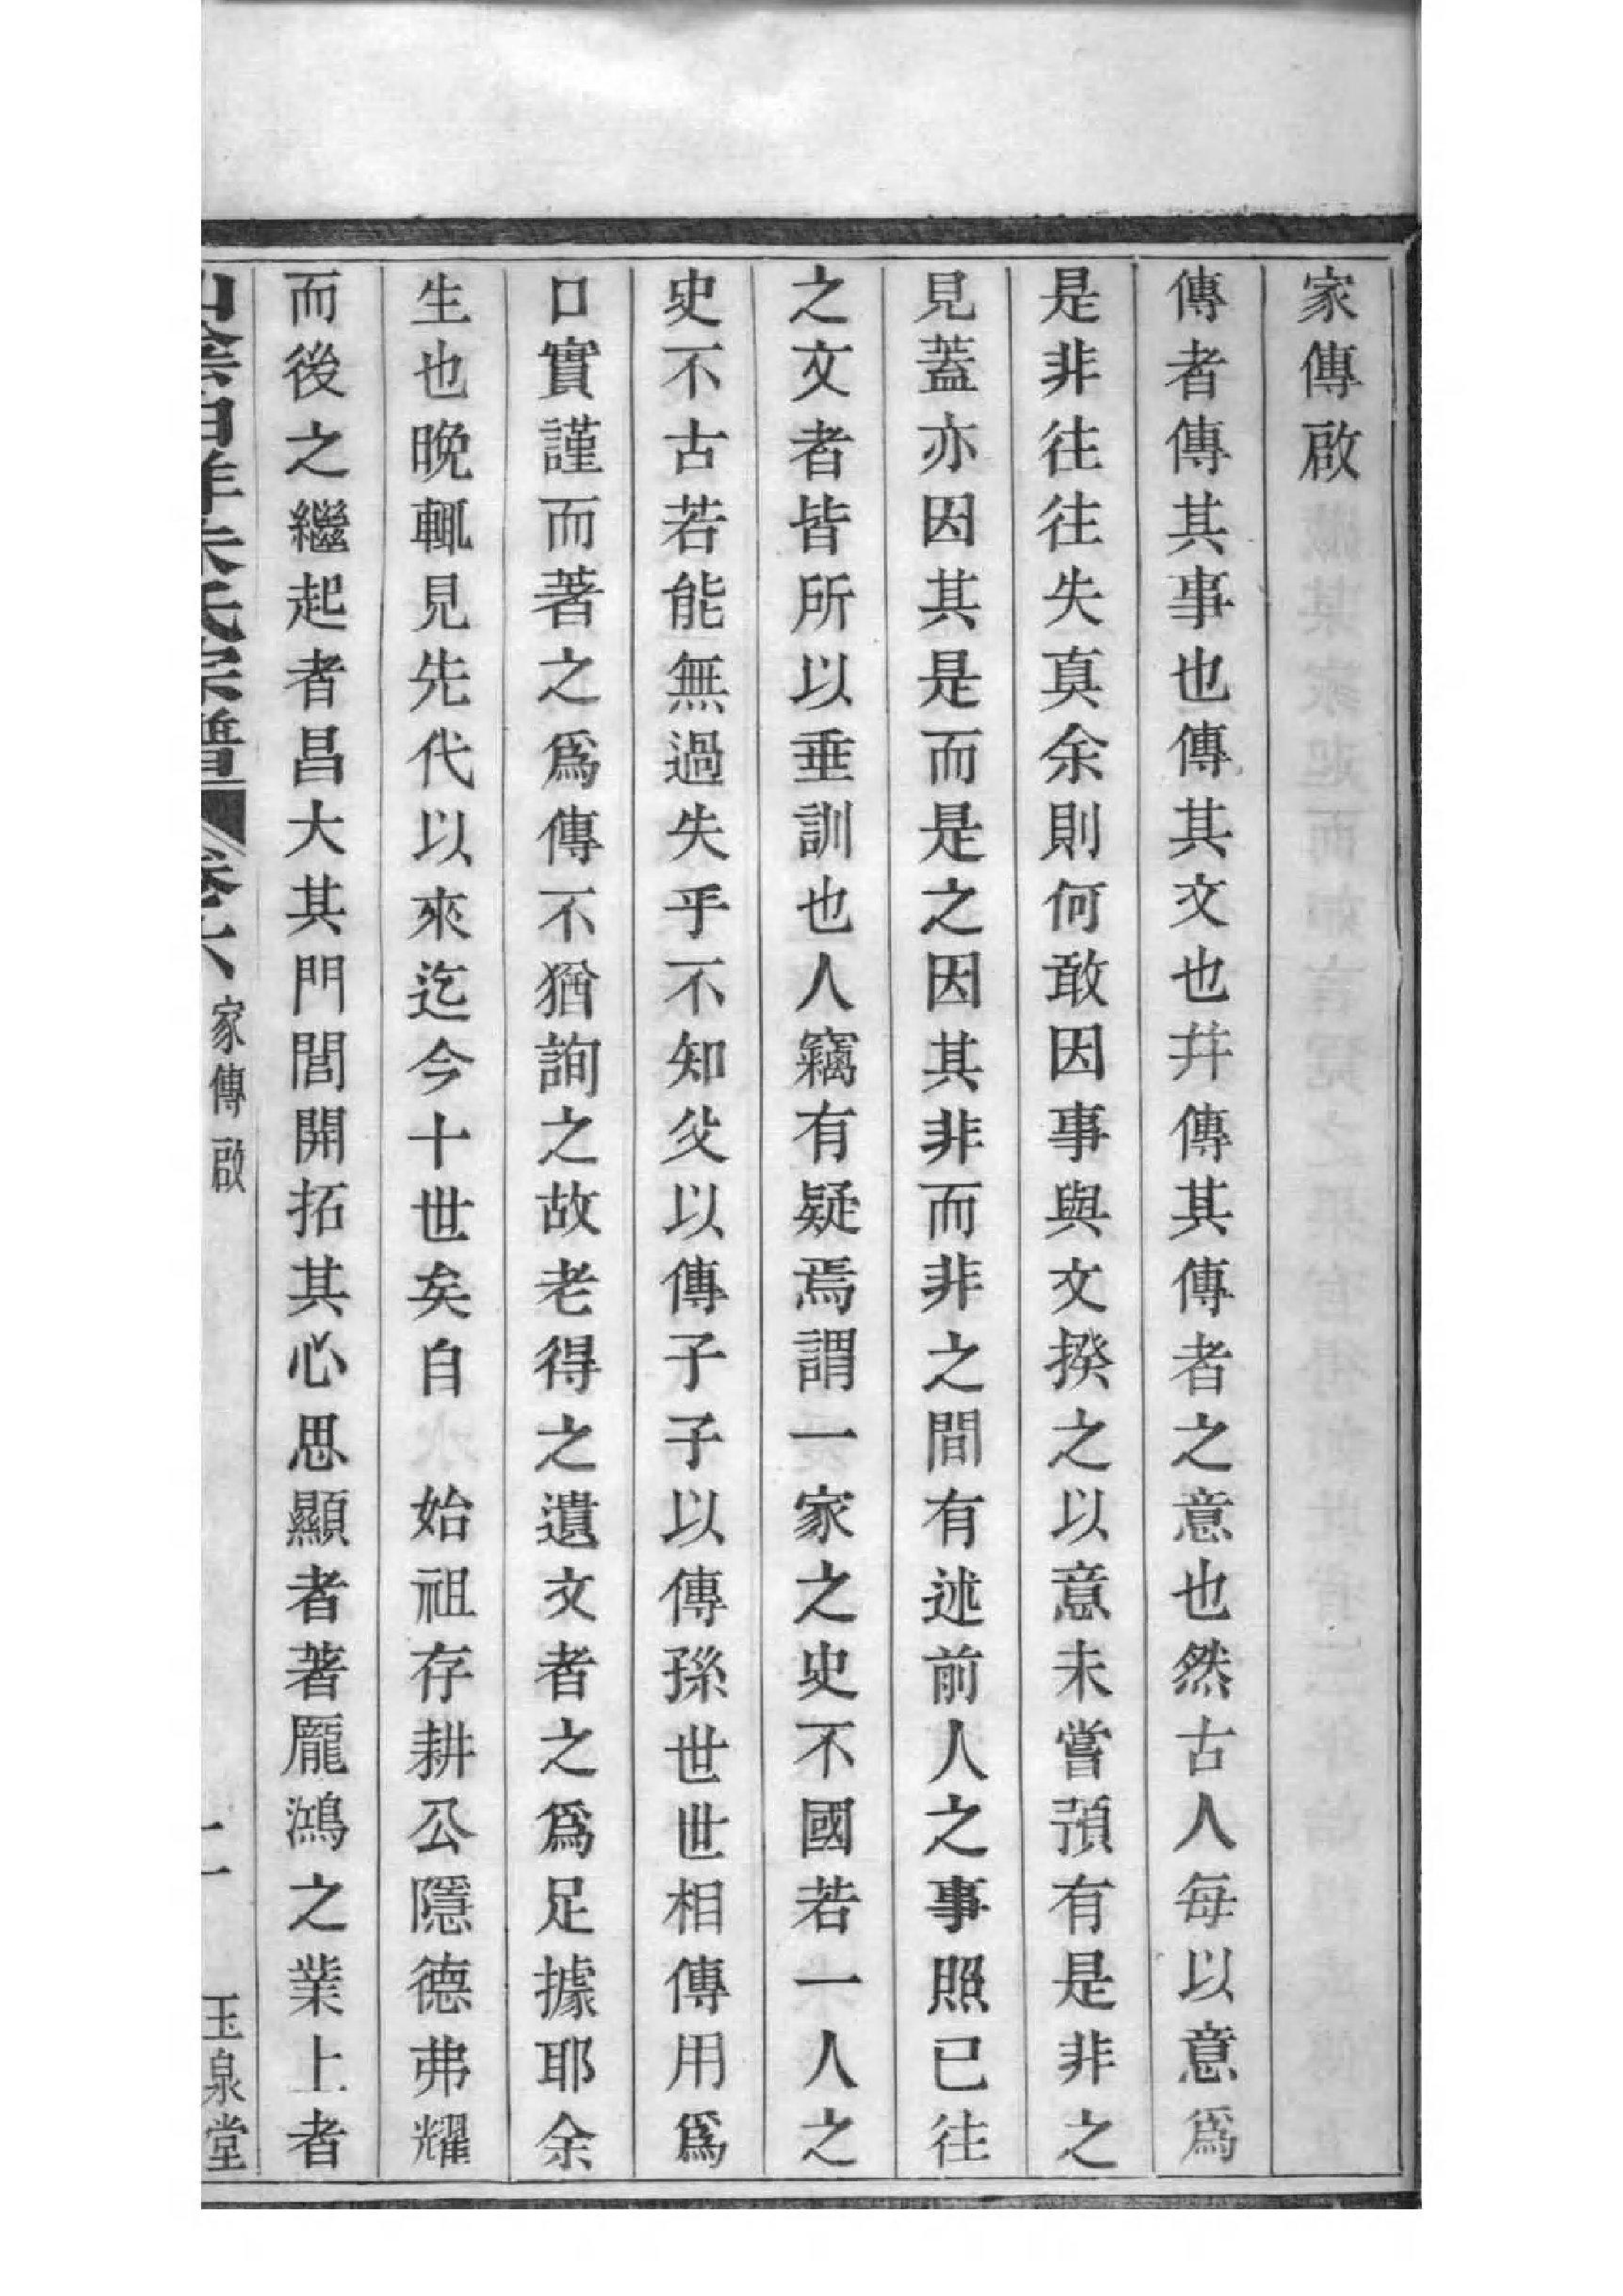 家傳啟
傳者傳其事也傳其文也幷傳其傳者之意也然古人每以意爲
是非往往失真余則何敢因事與文揆之以意未嘗預有是非之
見蓋亦因其是而是之因其非而非之間有述前人之事照已往
之文者皆所以垂訓也人竊有疑焉謂一家之史不國若一人之
史不古若能無過失乎不知父以傳子子以傳孫世世相傳用爲
口實謹而著之爲傳不猶詢之故老得之遺文者之爲足據耶余
生也晚輒見先代以來迄今十世矣自 始祖存耕公隱德弗耀
而後之繼起者昌大其門閭開拓其心思顯者著龐鴻之業上者
山陰白洋朱氏宗譜 卷六 家傳啟 玉泉堂